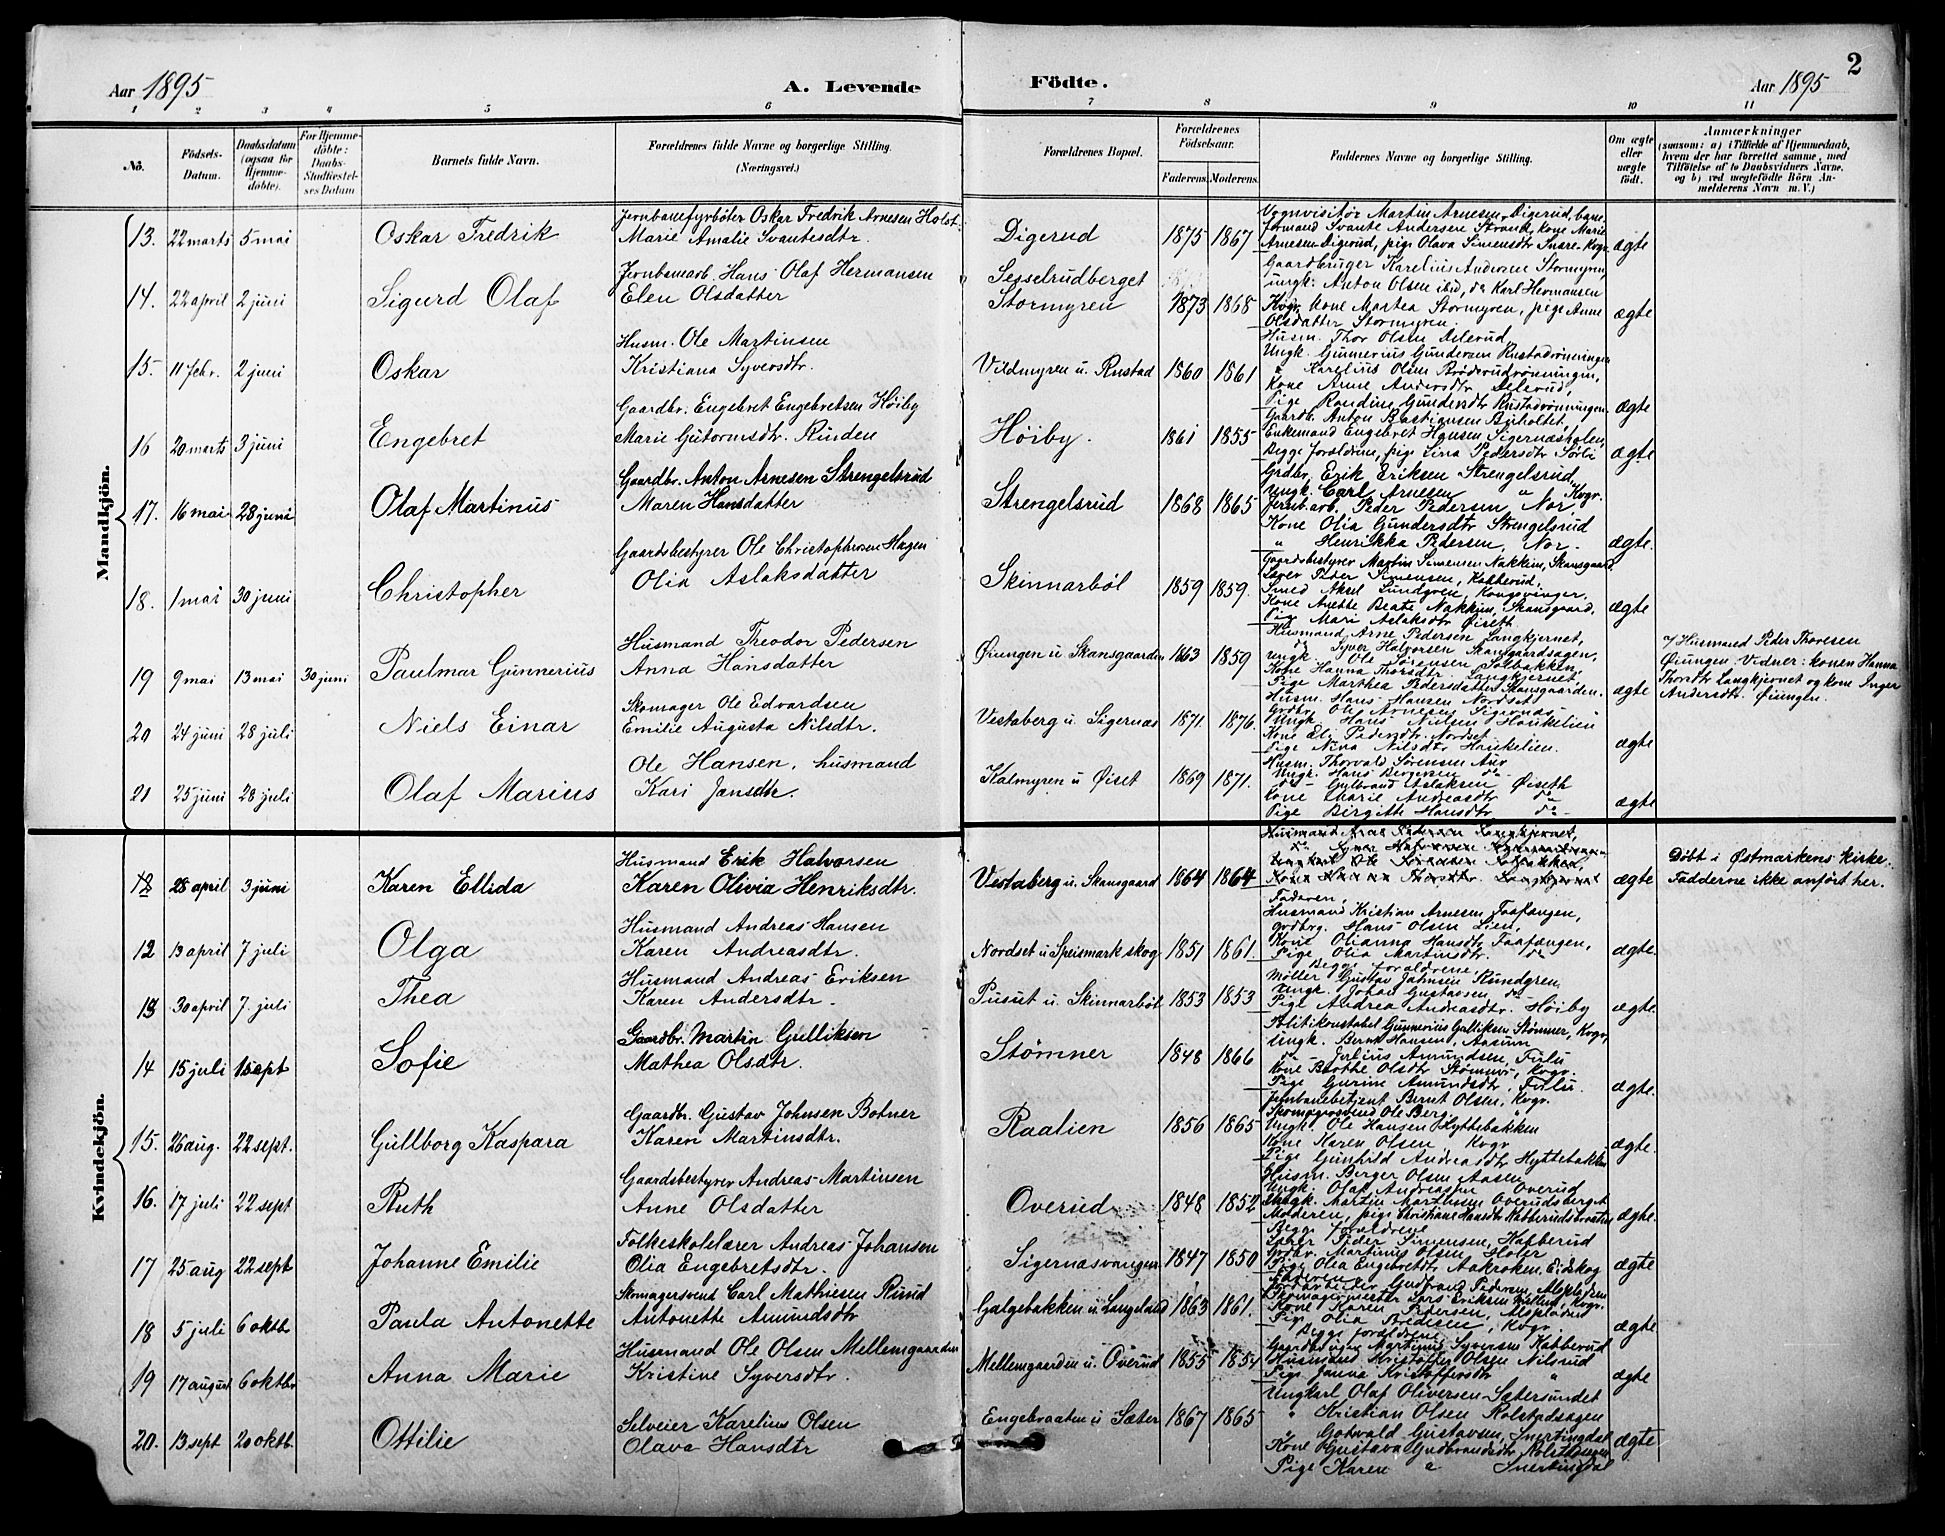 Aar 1895
A. Levende
Födte.
Aar 1895
2
1 2 3 4 5 6 7 8 9 10 11
No.
Födsels-Datum.
Daabsdatum (ogsaa for Hjemme-döbte).
For Hjemme-döbte: Daabs-Stadfæstel-ses Datum
Barnets fulde Navn.
Forældrenes fulde Navne og borgerlige Stilling. (Næringsvei.)
Forældrenes Bopæl.
Forældrenes Födselsaar.
Faderens. Moderens.
Faddernes Navne og borgerlige Stilling.
Om ægte eller uægte födt.
Anmærkninger
(saasom: a) i Tilfælde af Hjemmedaab, hvem der har forrettet samme, med Tilföielse af to Daabsvidners Navne, og b) ved uægtefödte Börn An-melderens Navn m. V.)
Mandkjön.
13. 22 marts 5 mai Oskar Fredrik
Jernbanefyrbøter Oskar Fredrik Arnesen Holst
Marie Amalie Svantesdtr.
Digerud 1875 1867
Vognvisitør Martin Arnesen Digerud, bane-
formand Svante Andersen Strand, kone Marie
Arnesen Digerud, pige Olava Simensdtr Snare-Kvgr. ægte
14. 22 april 2 juni Sigurd Olaf
Jernbanearb. Hans Olaf Hermansen
Elen Olsdatter
Sesselrudberget
Stormyren 1873 1868
Gaardbruger Karelius Andersen Stormyren,
ungk. Anton Olsen ibid, do Karl Hermansen
Kvgr, kone Martea Stormyren, pige Anne
Olsdatter Stormyren. ægte
15. 11 febr. 2 juni Oskar
Husm. Ole Martinsen
Kristiana Syversdtr.
Vildmyren u. Rustad 1860 1861
Husm. Thor Olsen Alerud,
Ungk. Gunnerius Gundersen Rustadrønningen
" Karelius Olsen Brøderudrønningen,
Kone Anne Andersdtr Alerud,
Pige Randine Gundersdtr Rustadrønningen. ægte
16 20 marts 3 juni Engebret
Gaardbr. Engebret Engebretsen Høiby
Marie Gutormsdtr. Rinden
Høiby. 1861 1855
Gaardb. Anton Bastiansen Birholtet,
Enkemand Engebret Hansen Sigernæsholen,
Begge forældrene, pige Lina Pedersdtr Sørli ægte
17. 16 mai 28 juni Olaf Martinus
Gaardbr. Anton Arnesen Strengelsrud
Maren Hansdatter
Strengelsrud 1868 1865
Grdbr. Erik Eriksen Strengelsrud,
Ungk. Carl Arnesen " Kvgr.
Jernb.arb. Peder Pedersen, Nor,
Kone Olia Gundersdtr Strengelsrud
" Henrikka Pedersen, Nor. ægte.
18. 1 mai 30 juni Christopher
Gaardsbestyrer Ole Christophersen Hagen
Olia Aslaksdatter
Skinnarbøl 1859 1859.
Gaardsbestyrer Martin Simensen Nakkim, Skansgaard.
Lærer Peder Simensen, Kabberud,
Smed Aksel Lundgren, Kongsvinger,
Kone Anette Beate Nakkim, Skansgaard,
Pige Mari Aslaksdtr Øiseth ægte
19 9 mai 13 mai 30 juni Paulmar Gunnerius
Husmand Theodor Pedersen
Anna Hansdatter
Øiungen u Skansgaarden 1863 1859
Husmand Arne Pedersen Langkjernet,
do Syver Halvorsen Skansgaardsagen,
Ungk. Ole Sørensen Solbakken,
Kone Hanna Thorsdtr Langkjernet,
Pige Marthea Pedersdatter Skansgaarden. ægte
v/ Husmand Peder Thoresen
Øiungen. Vidner: konen Hanna
Thorsdtr Langkjernet og kone Inger
Andersdtr. Øiungen.
20 24 juni 28 juli Niels Einar
Skomager Ole Edvardsen
Emilie Augusta Nilsdtr.
Vestaberg u. Sigernæs 1871. 1876.
Husm. Hans Hansen Nordset
Grdbr. Ole Arnesen Sigernæs
Ungk. Hans Nielsen Haukelien
Kone Eli Pedersdtr. Nordset
Pige Nina Nilsdtr Haukelien. ægte
21 25 juni 28 juli Olaf Marius
Ole Hansen, husmand
Kari Jansdtr.
Kalmyren u Øiset 1869 1871.
Husm. Thorvald Sørensen Aur
Ungk. Hans Bergersen do
do Gulbrand Aslaksen Øiseth
Kone Marie Andreasdtr do
Pige Birgitte Hansdtr do ægte
Kvindekjön.
12 28 april 3 juni Karen Ellida
Husmand Erik Halvorsen
Karen Olivia Henriksdtr.
Vestaberg u. Skansgaard 1864 1864
Husmand Arne Pedersen Langkjernet,
Ungkarl Ole Sørensen Solbakken,
Kone Hanna Thorsdtr. Langkjernet ægte
Døbt i Østmarkens kirke.
Fadderne ikke anført her.
12 13 april 7 juli Olga
Husmand Andreas Hansen
Karen Andreasdtr.
Nordset u Speismark skog 1851 1861.
Faderen,
Husmand Kristian Arnesen Faafangen,
Grdbrg. Hans Olsen Lien,
Kone Olianna Hansdtr Faafangen,
Pige Olia Martinsdtr. do ægte.
13 30 april 7. juli Thea
Husmand Andreas Eriksen
Karen Andersdtr.
Pusut u. Skinnarbøl 1853 1853
Begge forældrene,
Möller Gustav Jahnsen Rundgren,
Ungk. Johan Gustavsen do
Pige Andrea Andreasdtr. Høiby ægte.
14 15 juli 1 sept Sofie
Gaardbr. Martin Gulliksen
Mathea Olsdtr.
Stømner 1848 1866
Politikonstabel Gunnerius Gulliksen Stømner, Kvgr,
Ungk. Bernt Hansen, Aasum
do Julius Amundsen, Fulu
Kone Berthe Olsdtr Stømner, Kvgr.
Pige Gurine Amundsdtr, Fulu. ægte.
15. 26 aug. 22 sept. Gullborg Kaspara
Gaardbr. Gustav Johnsen Botner
Karen Martinsdtr.
Raalien 1856 1865
Jernbanebetjent Bernt Olsen, Kvgr.
Skomagersvend Ole Berg "
Ungk. Ole Hansen Hyttebakken
Kone Karen Olsen Kvgr
Pige Gunhild Andreasdtr Hyttebakken ægte.
16. 17 juli 22 sept Ruth
Gaardsbestyrer Andreas Martinsen
Anne Olsdatter
Overud 1848 1852
Husm. Birger Olsen Aasen
Ungk. Olaf Andreassen Overud
Ungk. Martin Marthinsen Overudsberget
Moderen, pige Christiane Hansdtr Kabberudsbraaten ægte.
17 25 aug 22 sept Johanne Emilie
Folkeskolelærer Andreas Johansen
Olia Engebretsdtr.
Sigernæsvangen 1847 1850
Begge forældrene
Lærer Peder Simensen, Kabberud
Grdbr. Martinus Olsen Holer
Pige Olia Engebretsdtr Aakroken, Eidskog ægte
18 5 juli 6 oktb Paula Antonette
Skomagersvend Carl Mathiesen Rund
Antonette Amundsdtr
Galgebakken u Langeland 1863 1861.
Faderen
Gudbrand Pedersen,
Skomagermester Lars Eriksen Kvgr.
Kone Karen Pedersen,
Pige Olia Kvgr. ægte
19 17 august 6 oktbr Anna Marie
Husmand Ole Olsen Mellemgaarden
Kristine Syversdtr.
Mellemgaarden u. Overud 1855 1854
Begge forældrene
Gaardbruger Martinus Syversen Kabberud
Husmand Kristoffer Olsen Nilsrud
Pige Janna Kristoffersdtr " ægte
20. 13 sept 20 oktb. Ottilie
Selveier Karelius Olsen
Olava Hansdtr
Engebraaten u Sæter 1867 1865
Ungkarl Olaf Oliversen Sætersundet
" Kristian Olsen Rolstadsagen
" Gotwald Gustavsen, Snertingdal
Kone Gustava Gudbrandsdtr Rolstadsagen
Pige Karen " Snertingdal ægte